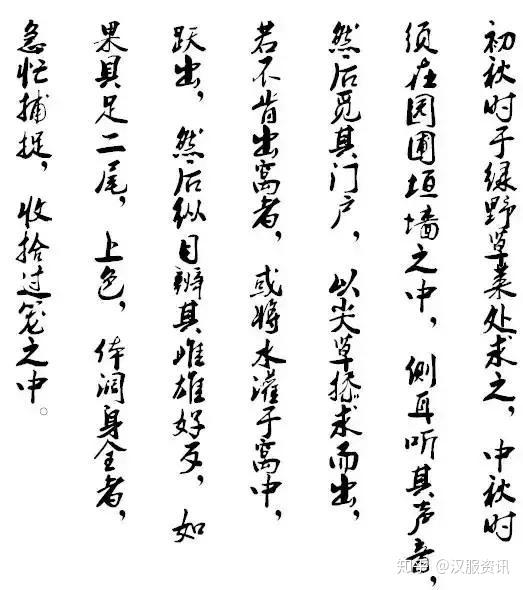 初秋时于绿野草菜处求之,中秋时
须在园圃垣墙之中,侧耳听其声音,
然后觅其门户,以尖草掭求而出,
若不肯出窝者,或将水灌于窝中,
跃出,然后纵目辨其雌雄好歹,如
果具足二尾,上色,体阔身全者,
急忙捕捉,收拾过笼之中。
知乎 @汉服资讯